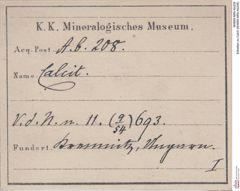 K. K. Mineralogisches Museum.
Acq. Post. A. b. 208.
Name Calcit.
V. d. N. n. 11. (9/54) 693.
Fundort. Kremnitz, Ungarn.
I